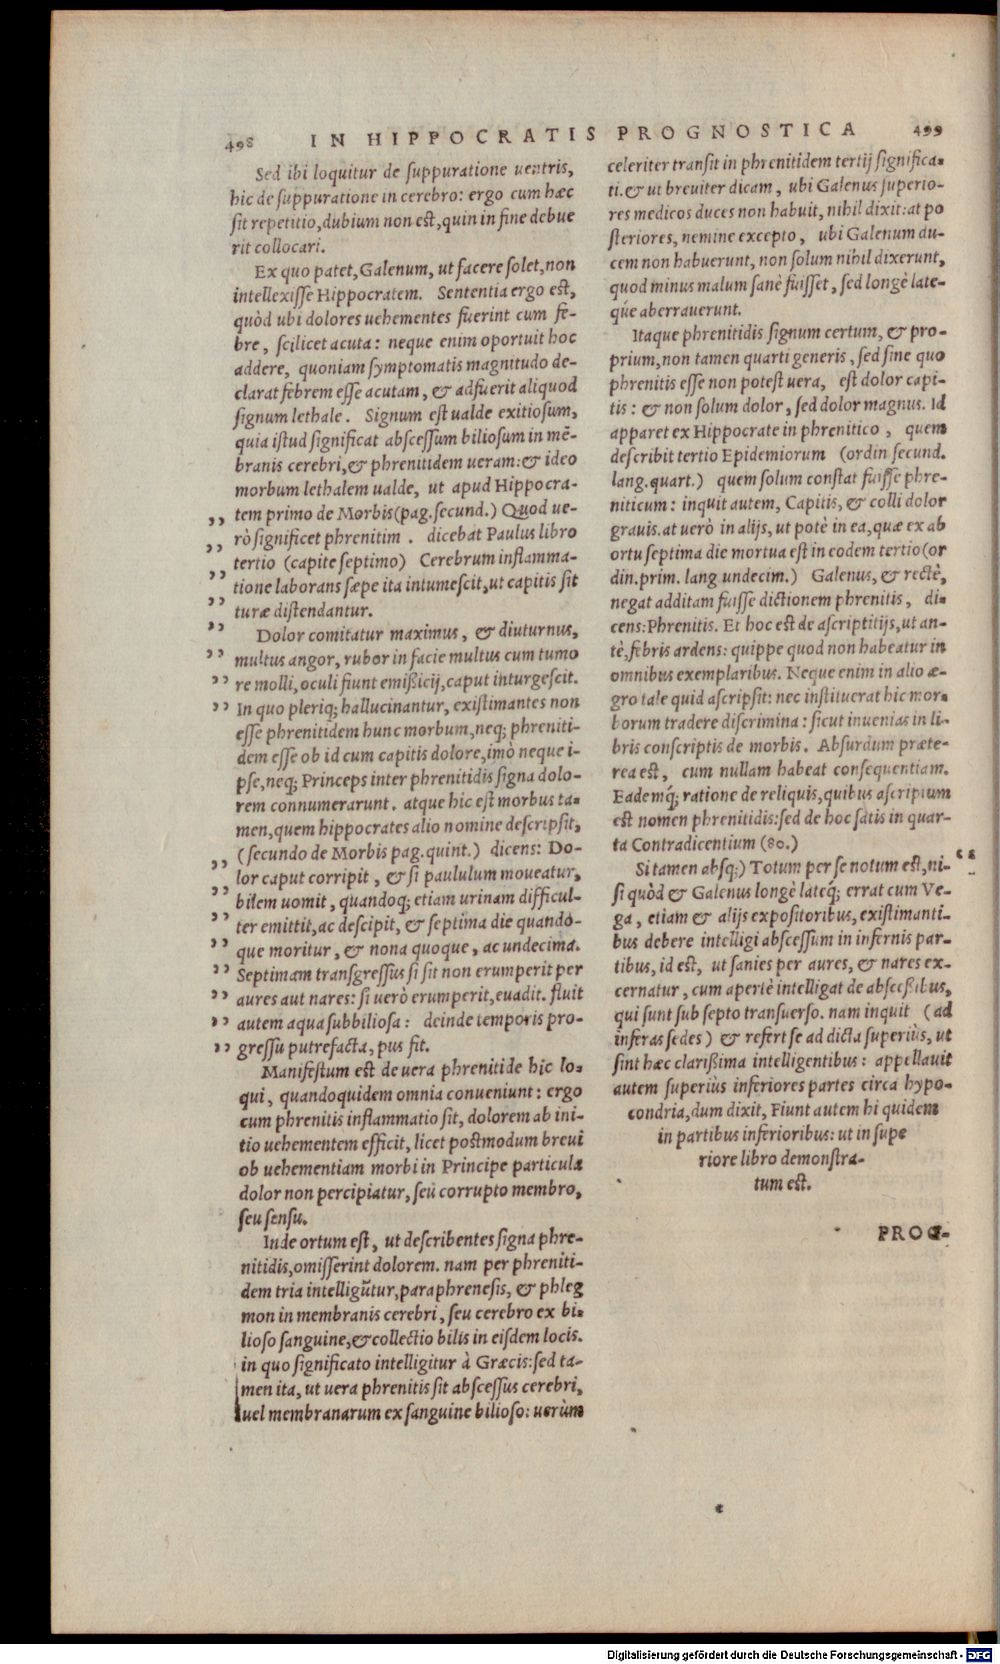 498 IN HIPPOCRATIS PROGNOSTICA 499
Sed ibi loquitur de suppuratione uentris,
hic de suppuratione in cerebro: ergo cum hæc
sit repetitio, dubium non est, quin in fine debue
rit collocari.
Ex quo patet, Galenum, ut facere solet, non
intellexisse Hippocratem. Sententia ergo est,
quòd ubi dolores uehementes fuerint cum fe-
bre, scilicet acuta: neque enim oportuit hoc
addere, quoniam symptomatis magnitudo de-
clarat febrem esse acutam, & adfuerit aliquod
signum lethale. Signum est ualde exitiosum,
quia istud significat abscessum biliosum in mē-
branis cerebri, & phrenitidem ueram: & ideo
morbum lethalem ualde, ut apud Hippocra-
,, tem primo de Morbis (pag. secund.) Quod ue-
,, rò significet phrenitim. dicebat Paulus libro
tertio (capite septimo) Cerebrum inflamma-
,, tione laborans sæpe ita intumescit, ut capitis sit
,, turæ distendantur.
,, Dolor comitatur maximus, & diuturnus,
,, multus angor, rubor in facie multus cum tumo
,, re molli, oculi fiunt emißicij, caput inturgescit.
,, In quo pleriq; hallucinantur, existimantes non
esse phrenitidem hunc morbum, neq; phreniti-
dem esse ob id cum capitis dolore, imò neque i-
pse, neq; Princeps inter phrenitidis signa dolo-
rem connumerarunt. atque hic est morbus ta-
men, quem hippocrates alio nomine descripsit,
(secundo de Morbis pag. quint.) dicens: Do-
,, lor caput corripit, & si paululum moueatur,
,, bilem uomit, quandoq; etiam urinam difficul-
,, ter emittit, ac desipit, & septima die quando-
,, que moritur, & nona quoque, ac undecima.
,, Septimam transgressus si sit non erumperit per
,, aures aut nares: si uerò erumperit, euadit. fluit
,, autem aqua subbiliosa: deinde temporis pro-
,, gressu putrefacta, pus fit.
Manifestum est de uera phrenitide hic lo-
qui, quandoquidem omnia conueniunt: ergo
cum phrenitis inflammatio sit, dolorem ab ini-
tio uehementem efficit, licet postmodum breui
ob uehementiam morbi in Principe particula
dolor non percipiatur, seu corrupto membro,
seu sensu.
Inde ortum est, ut describentes signa phre-
nitidis, omisserint dolorem. nam per phreniti-
dem tria intelligūtur, paraphrenesis, & phleg
mon in membranis cerebri, seu cerebro ex bi-
lioso sanguine, & collectio bilis in eisdem locis.
in quo significato intelligitur à Græcis: sed ta-
men ita, ut uera phrenitis sit abscessus cerebri,
uel membranarum ex sanguine bilioso: uerùm
celeriter transit in phrenitidem tertij significa-
ti. & ut breuiter dicam, ubi Galenus superio-
res medicos duces non habuit, nihil dixit: at po
steriores, nemine excepto, ubi Galenum du-
cem non habuerunt, non solum nihil dixerunt,
quod minus malum sanè fuisset, sed longè late-
qúe aberrauerunt.
Itaque phrenitidis signum certum, & pro-
prium, non tamen quarti generis, sed sine quo
phrenitis esse non potest uera, est dolor capi-
tis: & non solum dolor, sed dolor magnus. Id
apparet ex Hippocrate in phrenitico, quem
describit tertio Epidemiorum (ordin secund.
lang. quart.) quem solum constat fuisse phre-
niticum: inquit autem, Capitis, & colli dolor
grauis. at uerò in alijs, ut potè in ea, quæ ex ab
ortu septima die mortua est in eodem tertio (or
din. prim. lang undecim.) Galenus, & rectè,
negat additam fuisse dictionem phrenitis, di-
cens: Phrenitis. Et hoc est de ascriptitijs, ut an-
tè, febris ardens: quippe quod non habeatur in
omnibus exemplaribus. Neque enim in alio æ-
gro tale quid ascripsit: nec instituerat hic mor-
borum tradere discrimina: sicut inuenias in li-
bris conscriptis de morbis. Absurdum præte-
rea est, cum nullam habeat consequentiam.
Eademq́; ratione de reliquis, quibus ascriptum
est nomen phrenitidis: sed de hoc satis in quar-
ta Contradicentium (80.)
Si tamen absq;) Totum per se notum est, ni- ‘‘
si quòd & Galenus longè lateq́; errat cum Ve-
ga, etiam & alijs expositoribus, existimanti-
bus debere intelligi abscessum in infernis par-
tibus, id est, ut sanies per aures, & nares ex-
cernatur, cum apertè intelligat de abscessibus,
qui sunt sub septo transuerso. nam inquit (ad
inferas sedes) & refert se ad dicta superiùs, ut
sint hæc clarißima intelligentibus: appellauit
autem superiùs inferiores partes circa hypo-
condria, dum dixit, Fiunt autem hi quidem
in partibus inferioribus: ut in supe
riore libro demonstra-
tum est.
PROG-
Digitalisierung gefördert durch die Deutsche Forschungsgemeinschaft - DFG